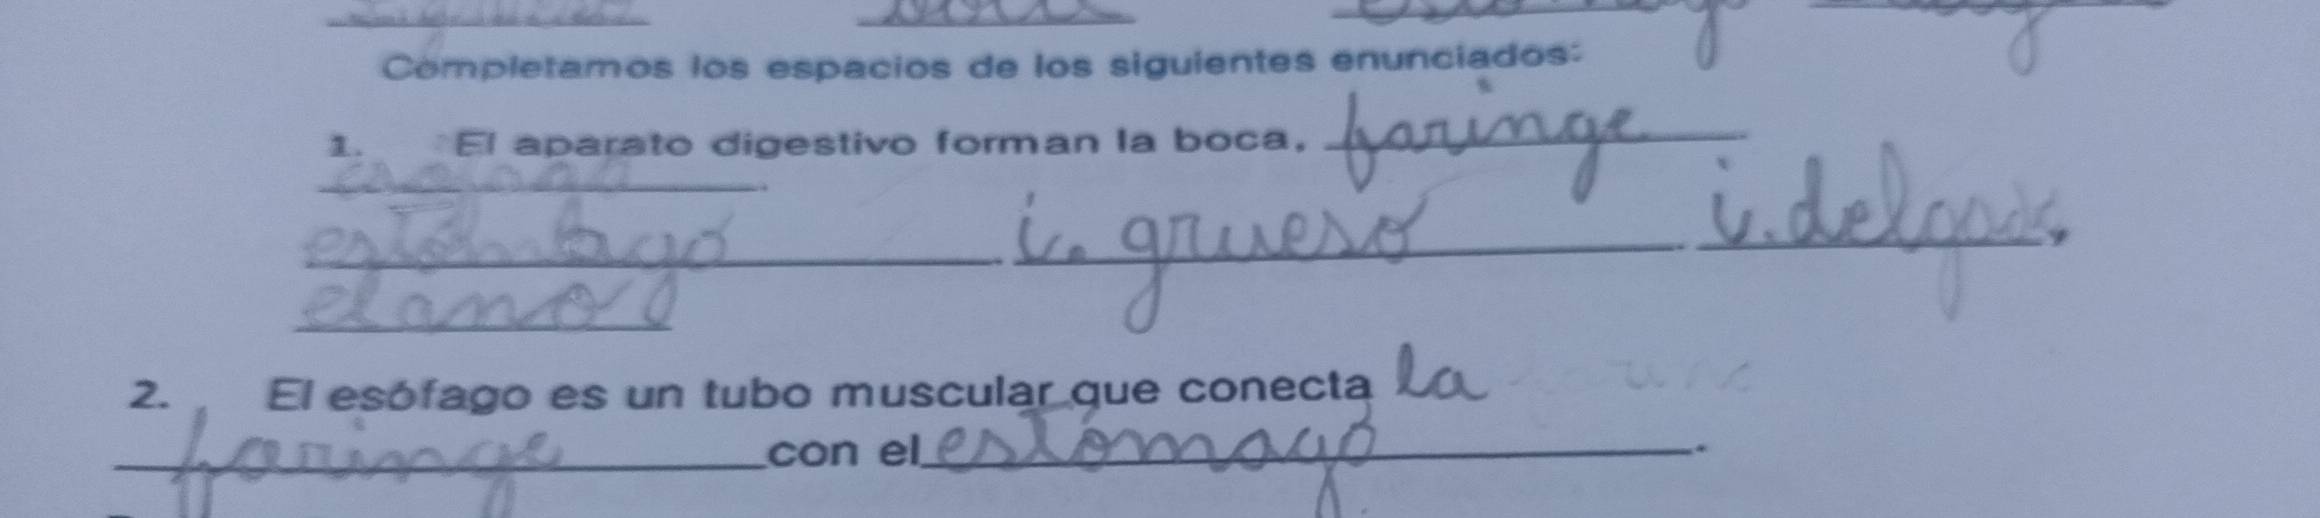 Completamos los espacios de los siguientes enunciados:
1. El aparato digestivo forman la boca, faringe
i. grueso i. delgado,
el ano
2. El esófago es un tubo muscular que conecta la
faringe con el estómago.